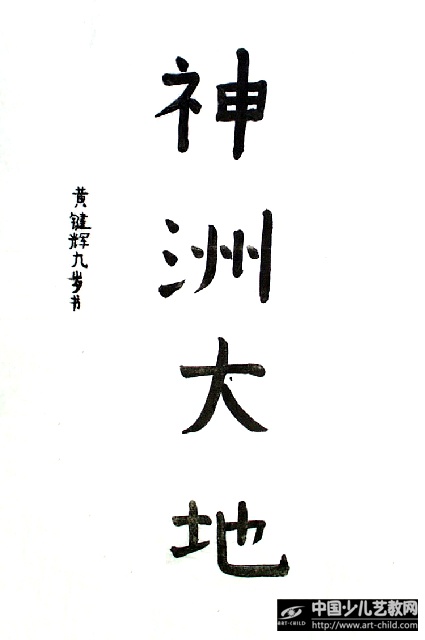 神洲大地
黄键辉九岁书
ART-CHILD
中国少儿艺教网
http://www.art-child.com